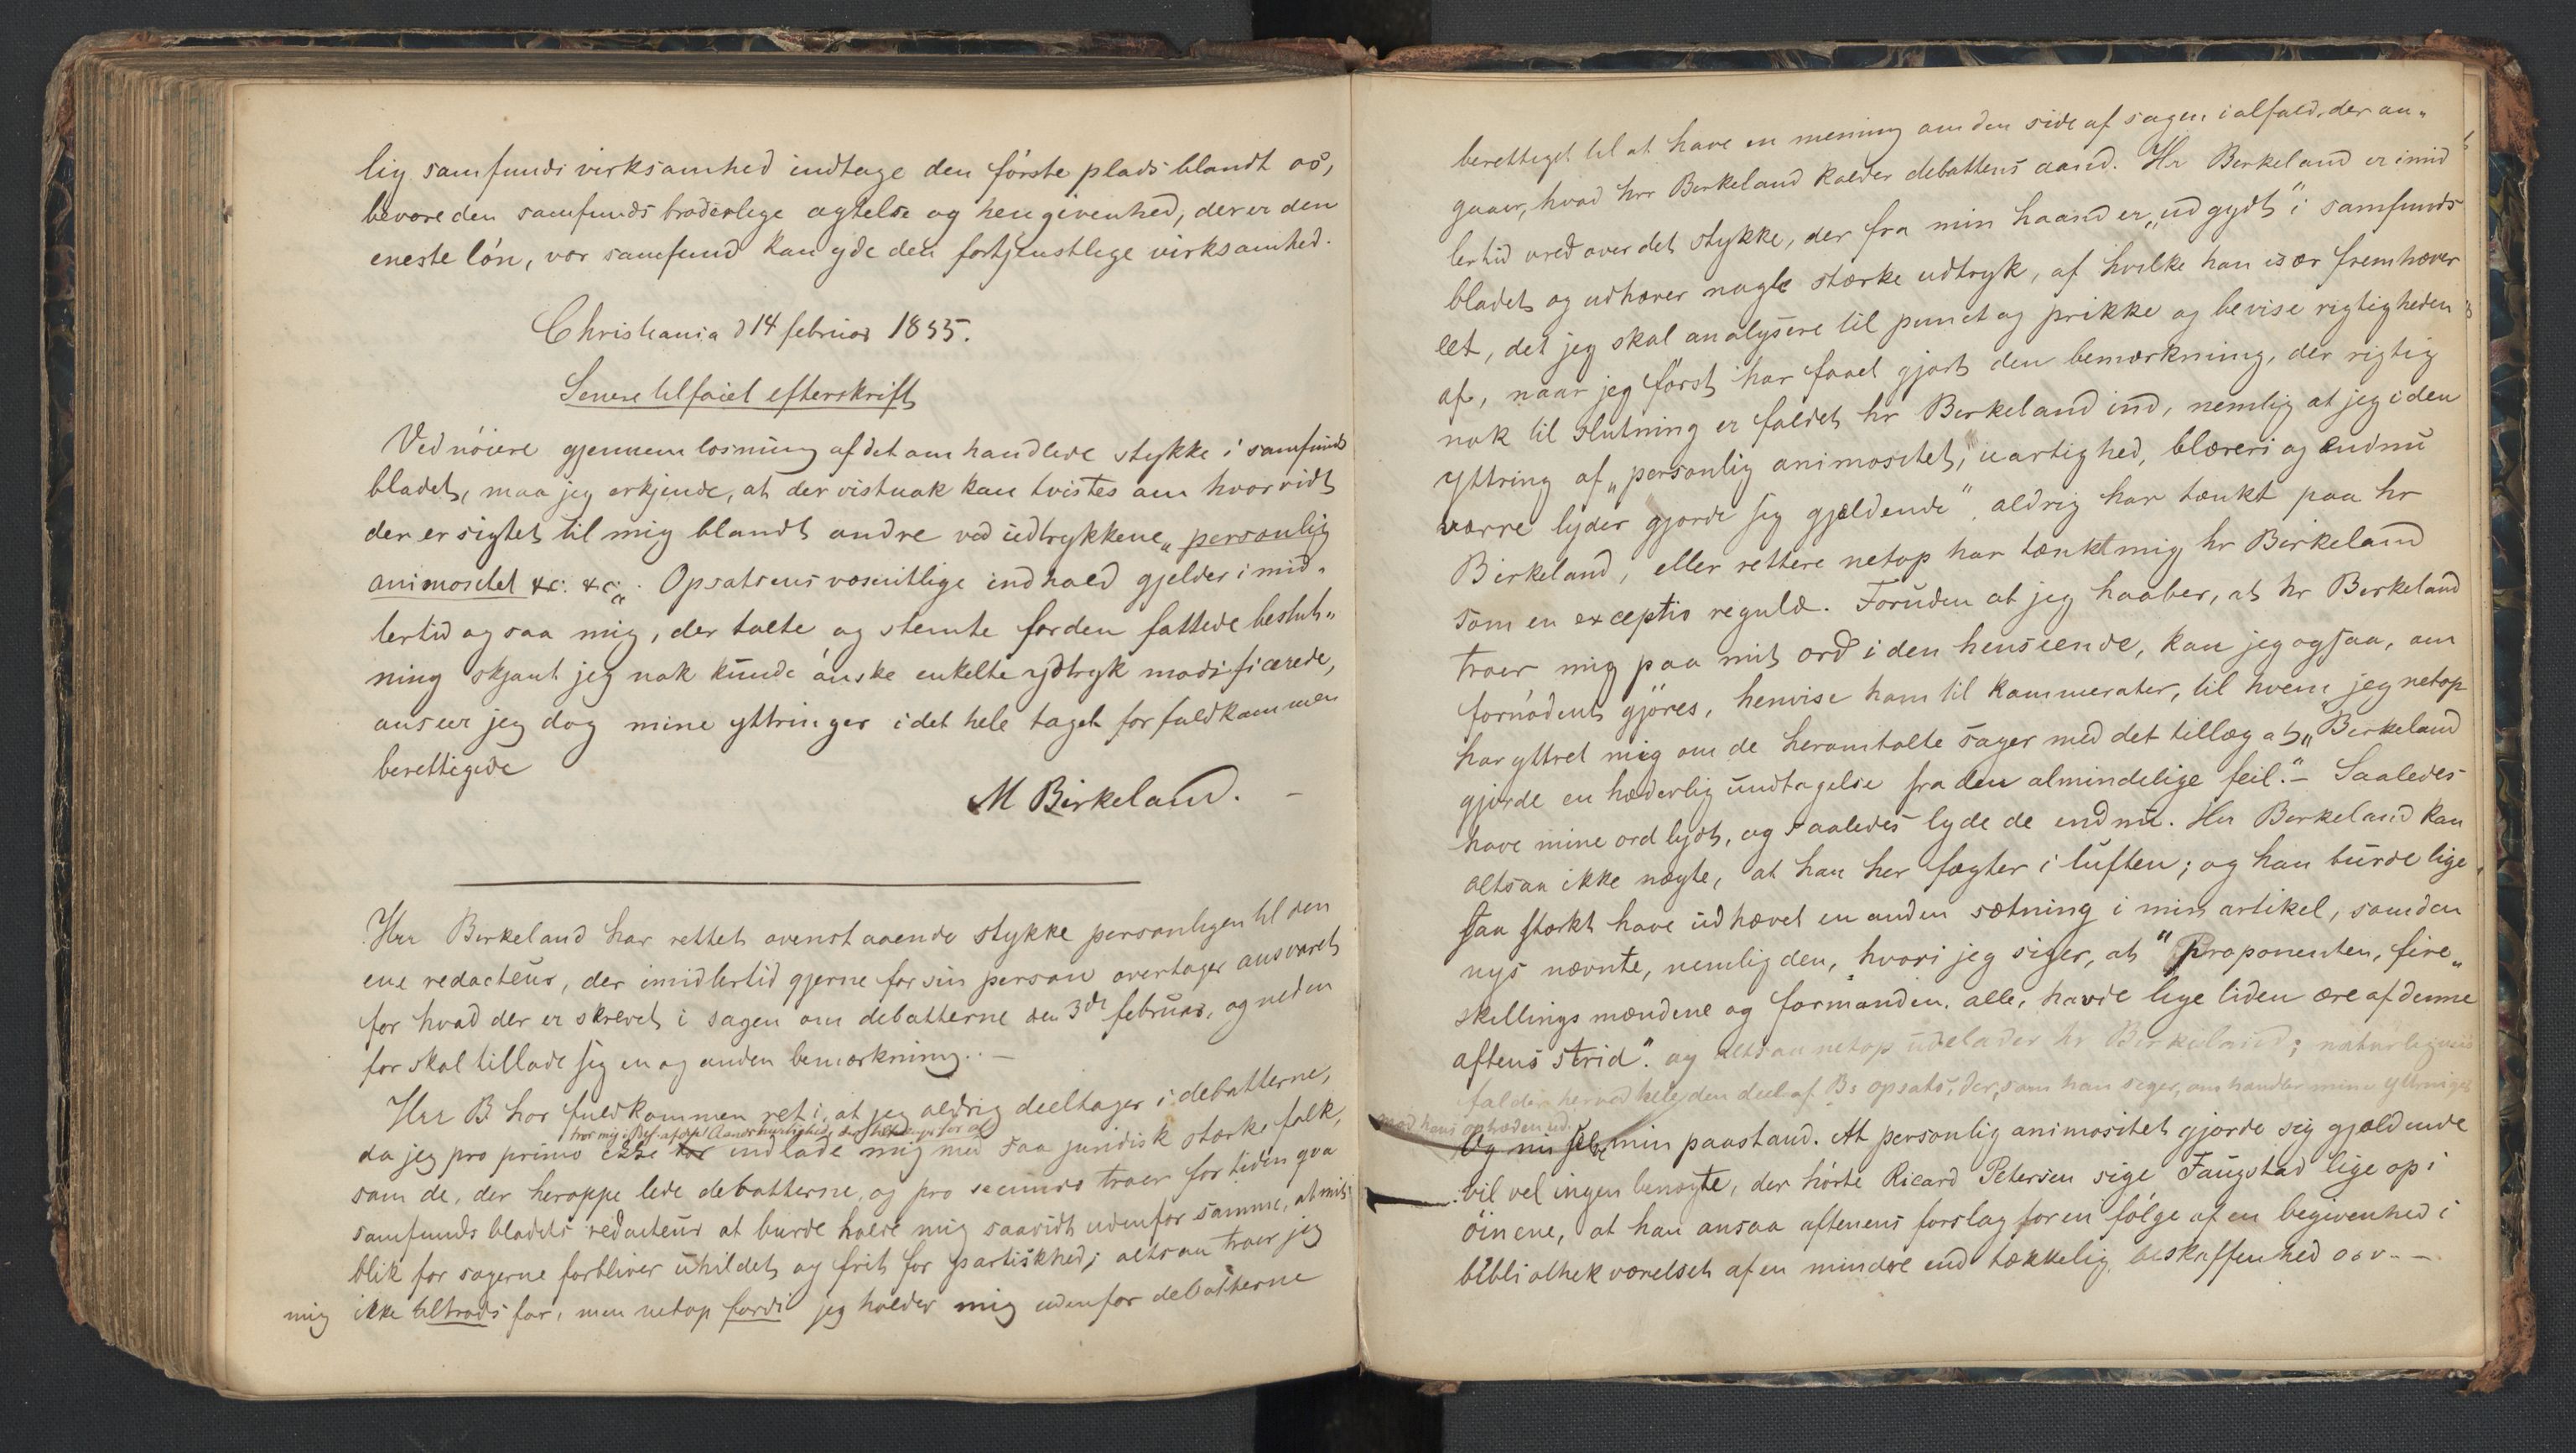 lig samfundsvirksamhed indtage den første plads blandt os,
bevare den samfunds broderlige agtelse og hengivenhed, der er den
eneste løn, vor samfund kan yde den fortjenstlige virksamhed.
Christiania d 14 februar 1855.
Senere tilføiet efterskrift
Ved nøiere gjennemlæsning af det omhandlede stykke i samfunds
bladet, maa jeg erkjende, at der vistnok kan tvistes om hvorvidt
der er sigtet til mig blandt andre ved udtrykkene „personlig
animositet &c: &c:“. Opsatsens væsentlige indhold gjelder imid„
lertid ogsaa mig, der talte og stemte for den fattede beslut„
ning skjønt jeg nok kunde ønske enkelte udtryk modificerede,
anseer jeg dog mine yttringer i det hele taget for fuldkommen
berettigede
M Birkeland. –
Herr Birkeland har rettet ovenstaaende stykke personligen til den
ene redacteur, der imidlertid gjerne for sin person overtager ansvaret
for hvad der er skrevet i sagen om debatterne den 3de februar, og neden
for skal tillade sig en og anden bemærkning. –
Herr B har fuldkommen ret i, at jeg aldrig deeltager i debatterne,
da jeg pro primo ikke tør indlade mig med saa juridisk stærke folk,
som de, der heroppe lede debatterne, og pro secundo troer for tiden qva
samfundsbladets redacteur at burde holde mig saavidt udenfor samme, at mit
blik for sagerne forbliver uhildet og frit for partiskhed; altsaa troer jeg
mig ikke tiltrods for, men netop fordi jeg holder mig udenfor debatterne
berettiget til at have en mening om den side af sagen ialfald, der an„
gaaer, hvad hrr Birkeland kalder debattens aand. Hr Birkeland er imid
lertid vred over det stykke, der fra min haand er „udgydt“ i samfunds
bladet og udhæver nogle stærke udtryk, af hvilke han især fremhæver
eet, det jeg skal analysere til punct og prikke og bevise rigtigheden
af, naar jeg først har faaet gjort den bemærkning, der rigtig
nok til slutning er faldet hr Birkeland ind, nemlig at jeg i den
yttring af „personlig animositet, uartighed, blæreri og endnu
værre lyder gjorde sig gjældende“ aldrig har tænkt paa hr
Birkeland, eller rettere netop har tænkt mig hr Birkeland
som en exceptio regulæ. Foruden at jeg haaber, at hr Birkeland
troer mig paa mit ord i den henseende, kan jeg ogsaa, om
fornødent gjöres, henvise ham til kammerater, til hvem jeg netop
har yttret mig om de heromtalte sager med det tillæg at „Birkeland
gjorde en hæderlig undtagelse fra den almindelige feil.“ – Saaledes
have mine ord lydt, og saaledes lyde de endnu. Herr Birkeland kan
altsaa ikke nægte, at han her fægter i luften; og han burde lige
saa stærkt have udhævet en anden sætning i min artikel, som den
nys nævnte, nemlig den, hvori jeg siger, at “Proponenten, fire„
skillings mændene og formanden, alle, havde lige liden ære af denne
aftens strid“. og altsaa netop udelader hr Birkeland; naturligviis
falder herved hele den deel af Bs opsats, der, som han siger, omhandler mine yttringer
mod hans optræden ud.
Og nu til min paastand. At personlig animositet gjorde sig gjældende
vil vel ingen benægte, der hørte Ricard Petersen sige Faugstad lige op i
öinene, at han ansaa aftenens forslag for en følge af en begivenhed i
bibliothekværelset af en mindre end tækkelig beskaffenhed osv. –